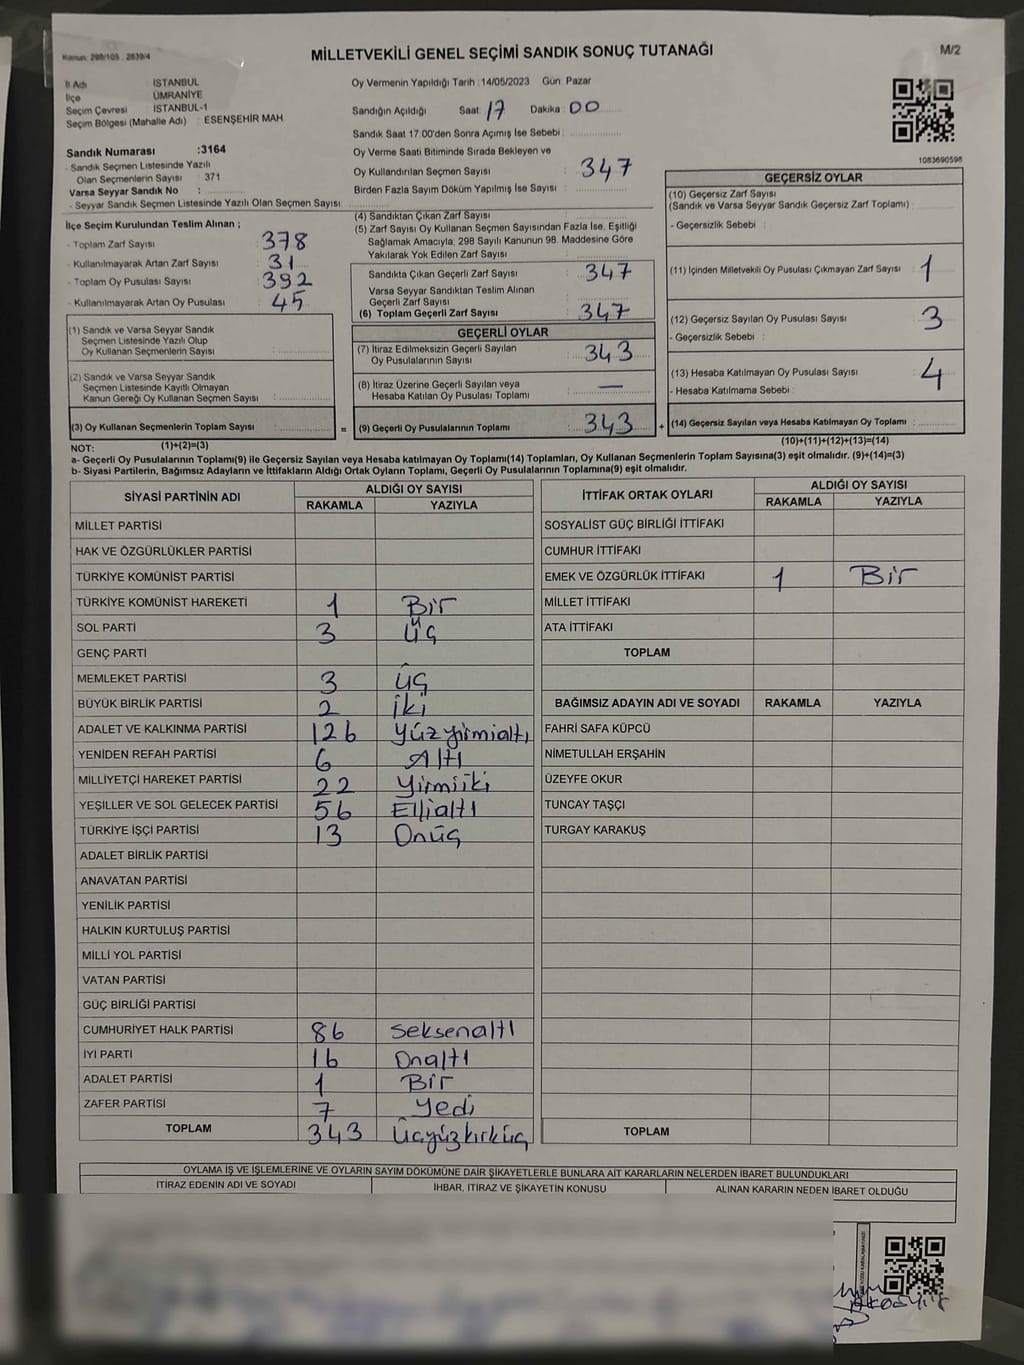 Kanun: 298/105 , 2839/4
MİLLETVEKİLİ GENEL SEÇİMİ SANDIK SONUÇ TUTANAĞI
M/2
İl Adı İSTANBUL
İlçe ÜMRANİYE
Seçim Çevresi İSTANBUL-1
Seçim Bölgesi (Mahalle Adı) : ESENŞEHİR MAH.
Sandık Numarası :3164
- Sandık Seçmen Listesinde Yazılı
Olan Seçmenlerin Sayısı : 371
Varsa Seyyar Sandık No :
- Seyyar Sandık Seçmen Listesinde Yazılı Olan Seçmen Sayısı:
Oy Vermenin Yapıldığı Tarih : 14/05/2023 Gün: Pazar
Sandığın Açıldığı Saat: 17 Dakika: 00
Sandık Saat 17:00'den Sonra Açımış İse Sebebi :
Oy Verme Saati Bitiminde Sırada Bekleyen ve
Oy Kullandırılan Seçmen Sayısı : 347
Birden Fazla Sayım Döküm Yapılmış İse Sayısı :
1083690598
İlçe Seçim Kurulundan Teslim Alınan ;
- Toplam Zarf Sayısı : 378
- Kullanılmayarak Artan Zarf Sayısı : 31
- Toplam Oy Pusulası Sayısı : 392
- Kullanılmayarak Artan Oy Pusulası : 45
(1) Sandık ve Varsa Seyyar Sandık
Seçmen Listesinde Yazılı Olup
Oy Kullanan Seçmenlerin Sayısı :
(2) Sandık ve Varsa Seyyar Sandık
Seçmen Listesinde Kayıtlı Olmayan
Kanun Gereği Oy Kullanan Seçmen Sayısı :
(3) Oy Kullanan Seçmenlerin Toplam Sayısı :
(1)+(2)=(3)
(4) Sandıktan Çıkan Zarf Sayısı :
(5) Zarf Sayısı Oy Kullanan Seçmen Sayısından Fazla İse, Eşitliği
Sağlamak Amacıyla; 298 Sayılı Kanunun 98. Maddesine Göre
Yakılarak Yok Edilen Zarf Sayısı :
Sandıkta Çıkan Geçerli Zarf Sayısı : 347
Varsa Seyyar Sandıktan Teslim Alınan
Geçerli Zarf Sayısı :
(6) Toplam Geçerli Zarf Sayısı : 347
GEÇERLİ OYLAR
(7) İtiraz Edilmeksizin Geçerli Sayılan
Oy Pusulalarının Sayısı : 343
(8) İtiraz Üzerine Geçerli Sayılan veya
Hesaba Katılan Oy Pusulası Toplamı : —
= (9) Geçerli Oy Pusulalarının Toplamı : 343 +
GEÇERSİZ OYLAR
(10) Geçersiz Zarf Sayısı
(Sandık ve Varsa Seyyar Sandık Geçersiz Zarf Toplamı) :
- Geçersizlik Sebebi :
(11) İçinden Milletvekili Oy Pusulası Çıkmayan Zarf Sayısı : 1
(12) Geçersiz Sayılan Oy Pusulası Sayısı : 3
- Geçersizlik Sebebi :
(13) Hesaba Katılmayan Oy Pusulası Sayısı : 4
- Hesaba Katılmama Sebebi :
(14) Geçersiz Sayılan veya Hesaba Katılmayan Oy Toplamı :
(10)+(11)+(12)+(13)=(14)
NOT:
a- Geçerli Oy Pusulalarının Toplamı(9) ile Geçersiz Sayılan veya Hesaba katılmayan Oy Toplamı(14) Toplamları, Oy Kullanan Seçmenlerin Toplam Sayısına(3) eşit olmalıdır. (9)+(14)=(3)
b- Siyasi Partilerin, Bağımsız Adayların ve İttifakların Aldığı Ortak Oyların Toplamı, Geçerli Oy Pusulalarının Toplamına(9) eşit olmalıdır.
SİYASİ PARTİNİN ADI ALDIĞI OY SAYISI
RAKAMLA YAZIYLA
MİLLET PARTİSİ
HAK VE ÖZGÜRLÜKLER PARTİSİ
TÜRKİYE KOMÜNİST PARTİSİ
TÜRKİYE KOMÜNİST HAREKETİ 1 Bir
SOL PARTİ 3 Üç
GENÇ PARTİ
MEMLEKET PARTİSİ 3 üç
BÜYÜK BİRLİK PARTİSİ 2 iki
ADALET VE KALKINMA PARTİSİ 126 yüzyirmialtı
YENİDEN REFAH PARTİSİ 6 Altı
MİLLİYETÇİ HAREKET PARTİSİ 22 yirmiiki
YEŞİLLER VE SOL GELECEK PARTİSİ 56 Ellialtı
TÜRKİYE İŞÇİ PARTİSİ 13 Onüç
ADALET BİRLİK PARTİSİ
ANAVATAN PARTİSİ
YENİLİK PARTİSİ
HALKIN KURTULUŞ PARTİSİ
MİLLİ YOL PARTİSİ
VATAN PARTİSİ
GÜÇ BİRLİĞİ PARTİSİ
CUMHURİYET HALK PARTİSİ 86 Seksenaltı
İYİ PARTİ 16 Onaltı
ADALET PARTİSİ 1 Bir
ZAFER PARTİSİ 7 Yedi
TOPLAM 343 Üçyüzkırküç
İTTİFAK ORTAK OYLARI ALDIĞI OY SAYISI
RAKAMLA YAZIYLA
SOSYALİST GÜÇ BİRLİĞİ İTTİFAKI
CUMHUR İTTİFAKI
EMEK VE ÖZGÜRLÜK İTTİFAKI 1 Bir
MİLLET İTTİFAKI
ATA İTTİFAKI
TOPLAM
BAĞIMSIZ ADAYIN ADI VE SOYADI RAKAMLA YAZIYLA
FAHRİ SAFA KÜPCÜ
NİMETULLAH ERŞAHİN
ÜZEYFE OKUR
TUNCAY TAŞÇI
TURGAY KARAKUŞ
TOPLAM
OYLAMA İŞ VE İŞLEMLERİNE VE OYLARIN SAYIM DÖKÜMÜNE DAİR ŞİKAYETLERLE BUNLARA AİT KARARLARIN NELERDEN İBARET BULUNDUKLARI
İTİRAZ EDENİN ADI VE SOYADI İHBAR, İTİRAZ VE ŞİKAYETİN KONUSU ALINAN KARARIN NEDEN İBARET OLDUĞU